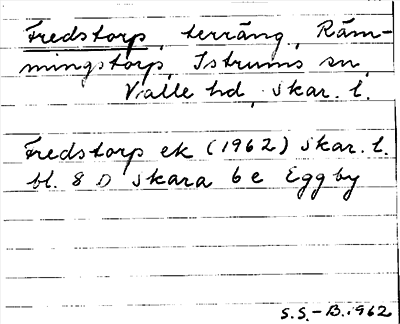 Fredstorp, terräng, Räm-
mingstorp, Istrums sn,
Valle hd, Skar. l.
Fredstorp ek (1962) Skar. l.
bl. 8 D Skara 6 e Eggby
S.S. - B. 1962